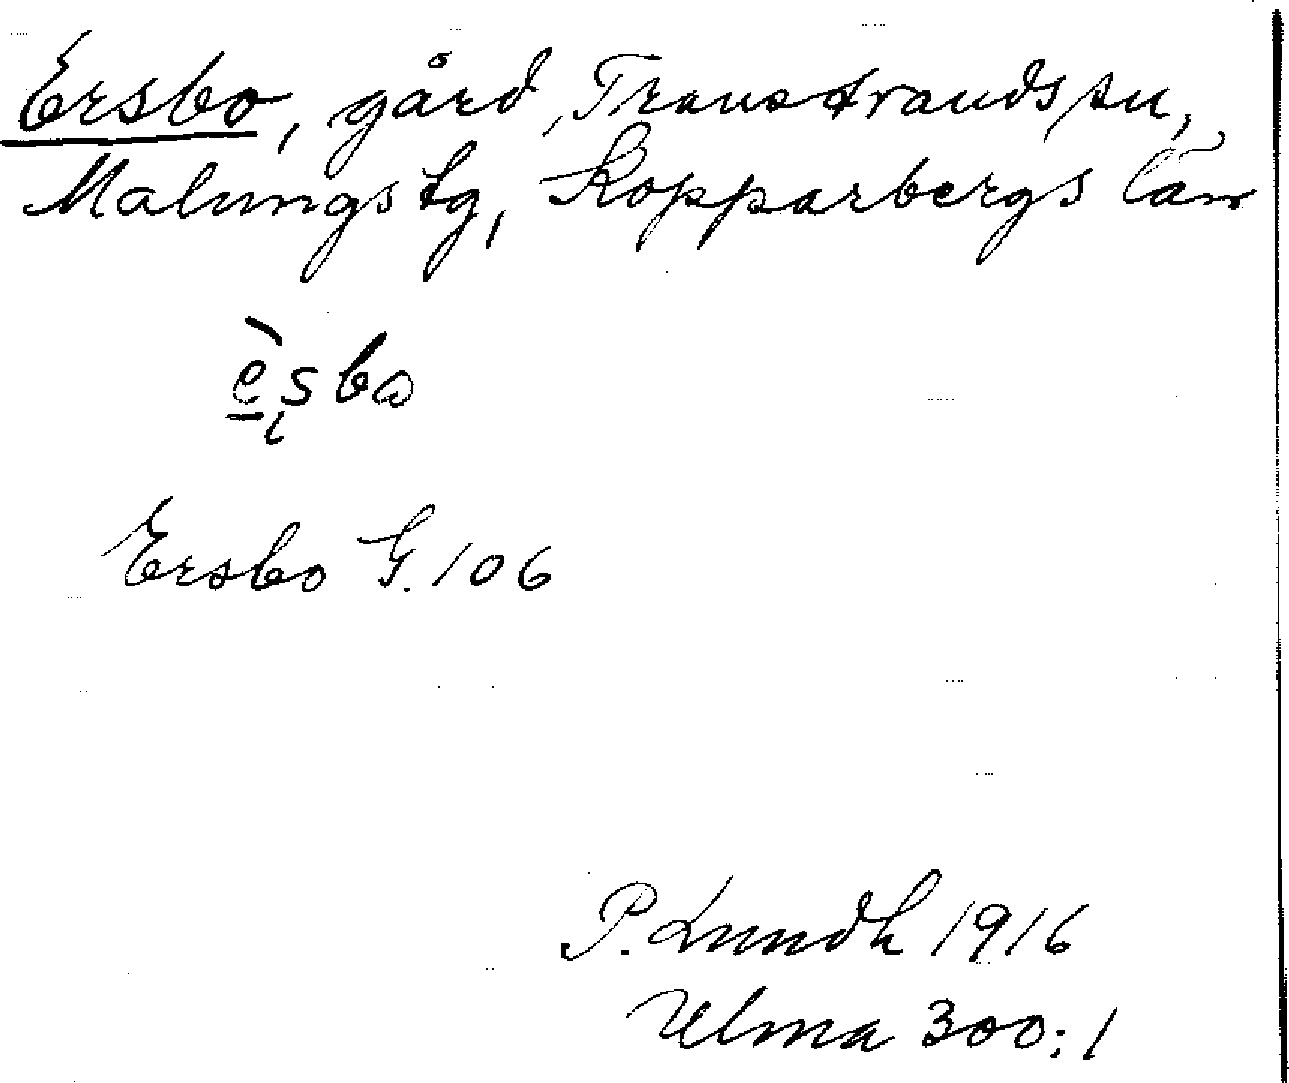 Ersbo, gård, Transtrands sn,
Malungs tg, Kopparbergs län
è̱ˌsbo
Ersbo G. 106
P. Lundh 1916
Ulma 300:1